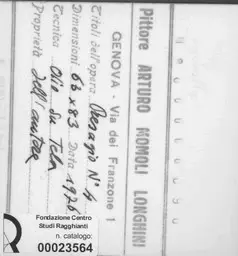 Pittore ARTURO MOMOLI LONGHINI
GENOVA - Via dei Franzone 1
Titoli dell'opera Presagio N° 4
Dimensioni 66 x 83 Data 1976
Tecnica Olio su Tela
Proprietà dell'autore
Fondazione Centro
Studi Ragghianti
n. catalogo:
00023564